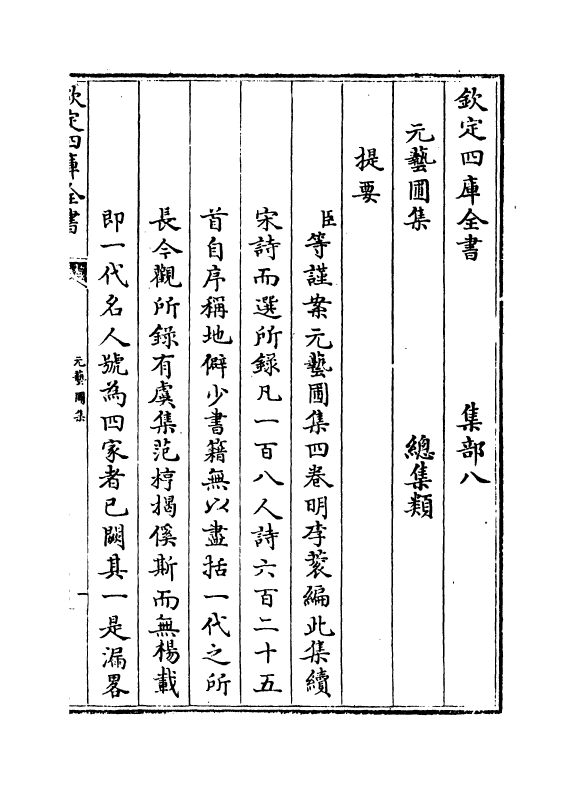 欽定四庫全書　集部八
元藝圃集　總集類
提要
臣等謹案元藝圃集四卷明李蓘編此集續
宋詩而選所錄凡一百八人詩六百二十五
首自序稱地僻少書籍無以盡括一代之所
長今觀所錄有虞集范梈揭傒斯而無楊載
即一代名人號為四家者已闕其一是漏畧
欽定四庫全書
元藝圃集
一